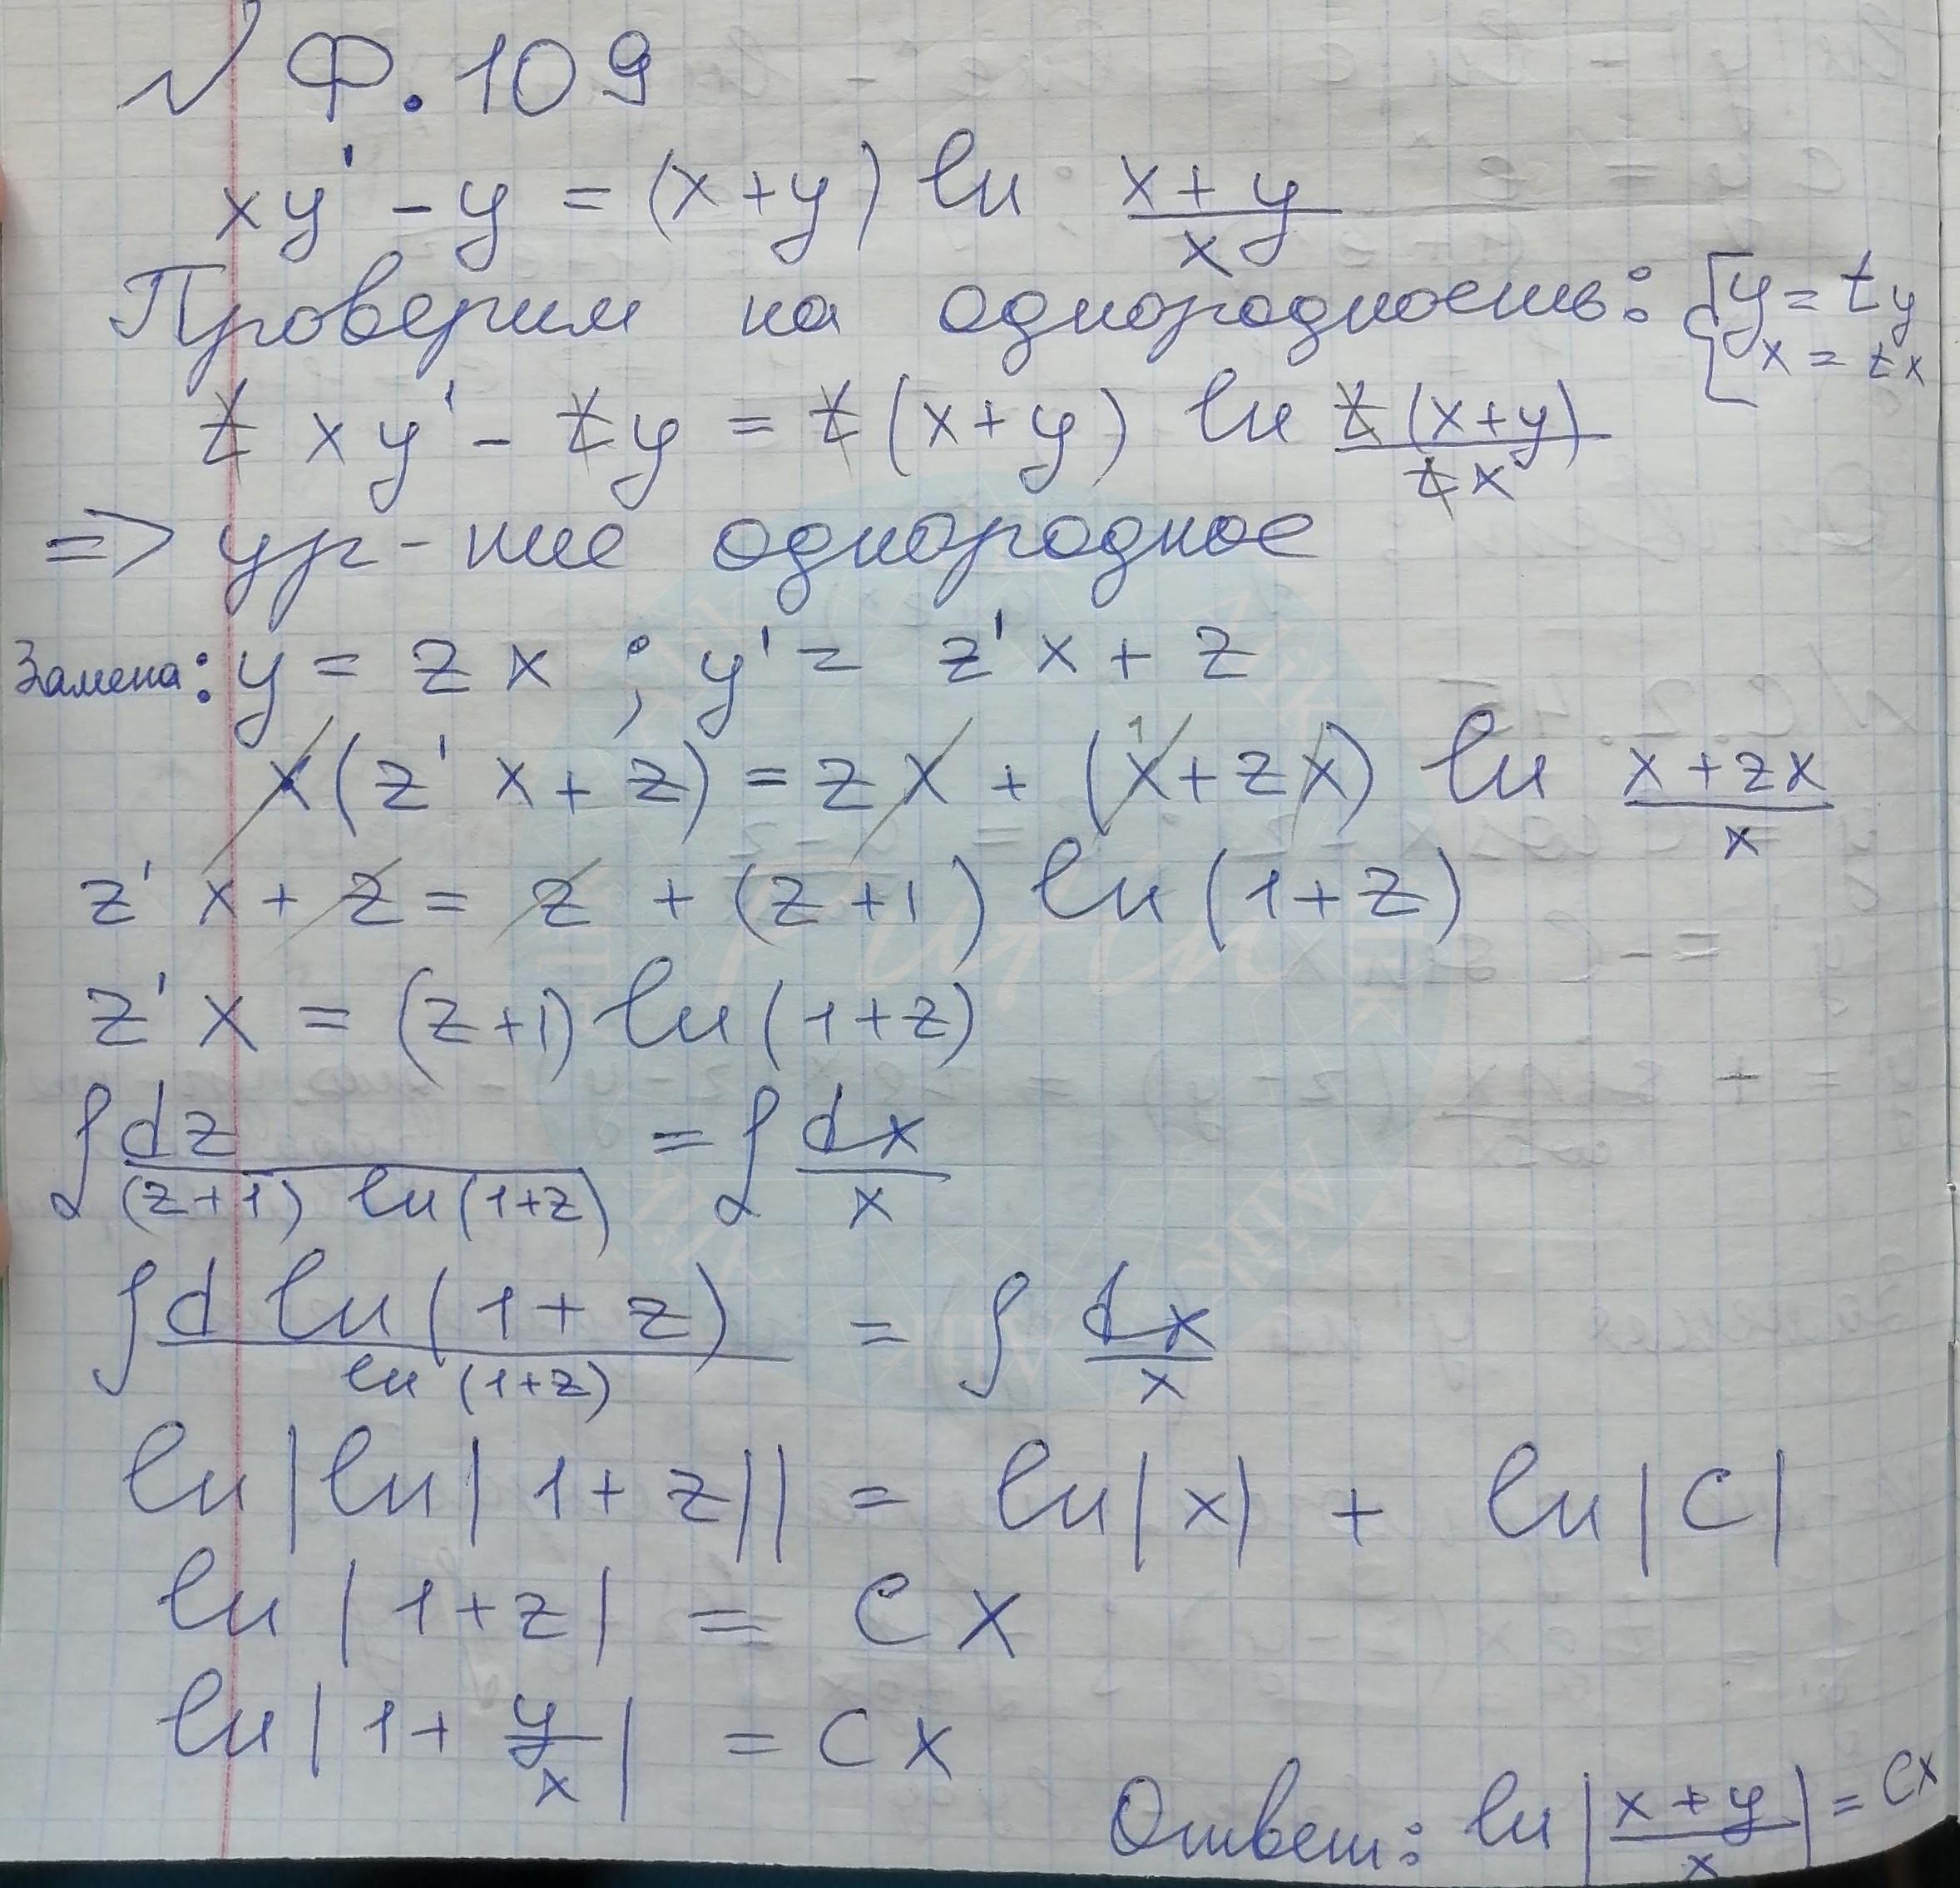 № Ф. 109
xy' - y = (x+y) ln (x+y)/x
Проверим на однородность: {y = ty
x = tx
t xy' - ty = t(x+y) ln t(x+y)/tx
=> ур-ние однородное
Замена: y = zx ; y' = z'x + z
x(z'x + z) = zx + (x+zx) ln (x+zx)/x
z'x + z = z + (z+1) ln(1+z)
z'x = (z+1) ln(1+z)
∫ dz/((z+1) ln(1+z)) = ∫ dx/x
∫ d ln(1+z)/ln(1+z) = ∫ dx/x
ln|ln|1+z|| = ln|x| + ln|C|
ln|1+z| = Cx
ln|1+ y/x| = Cx
Ответ: ln|(x+y)/x| = Cx